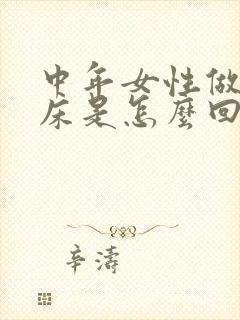 中年女性做
床是怎麼回
辛濤